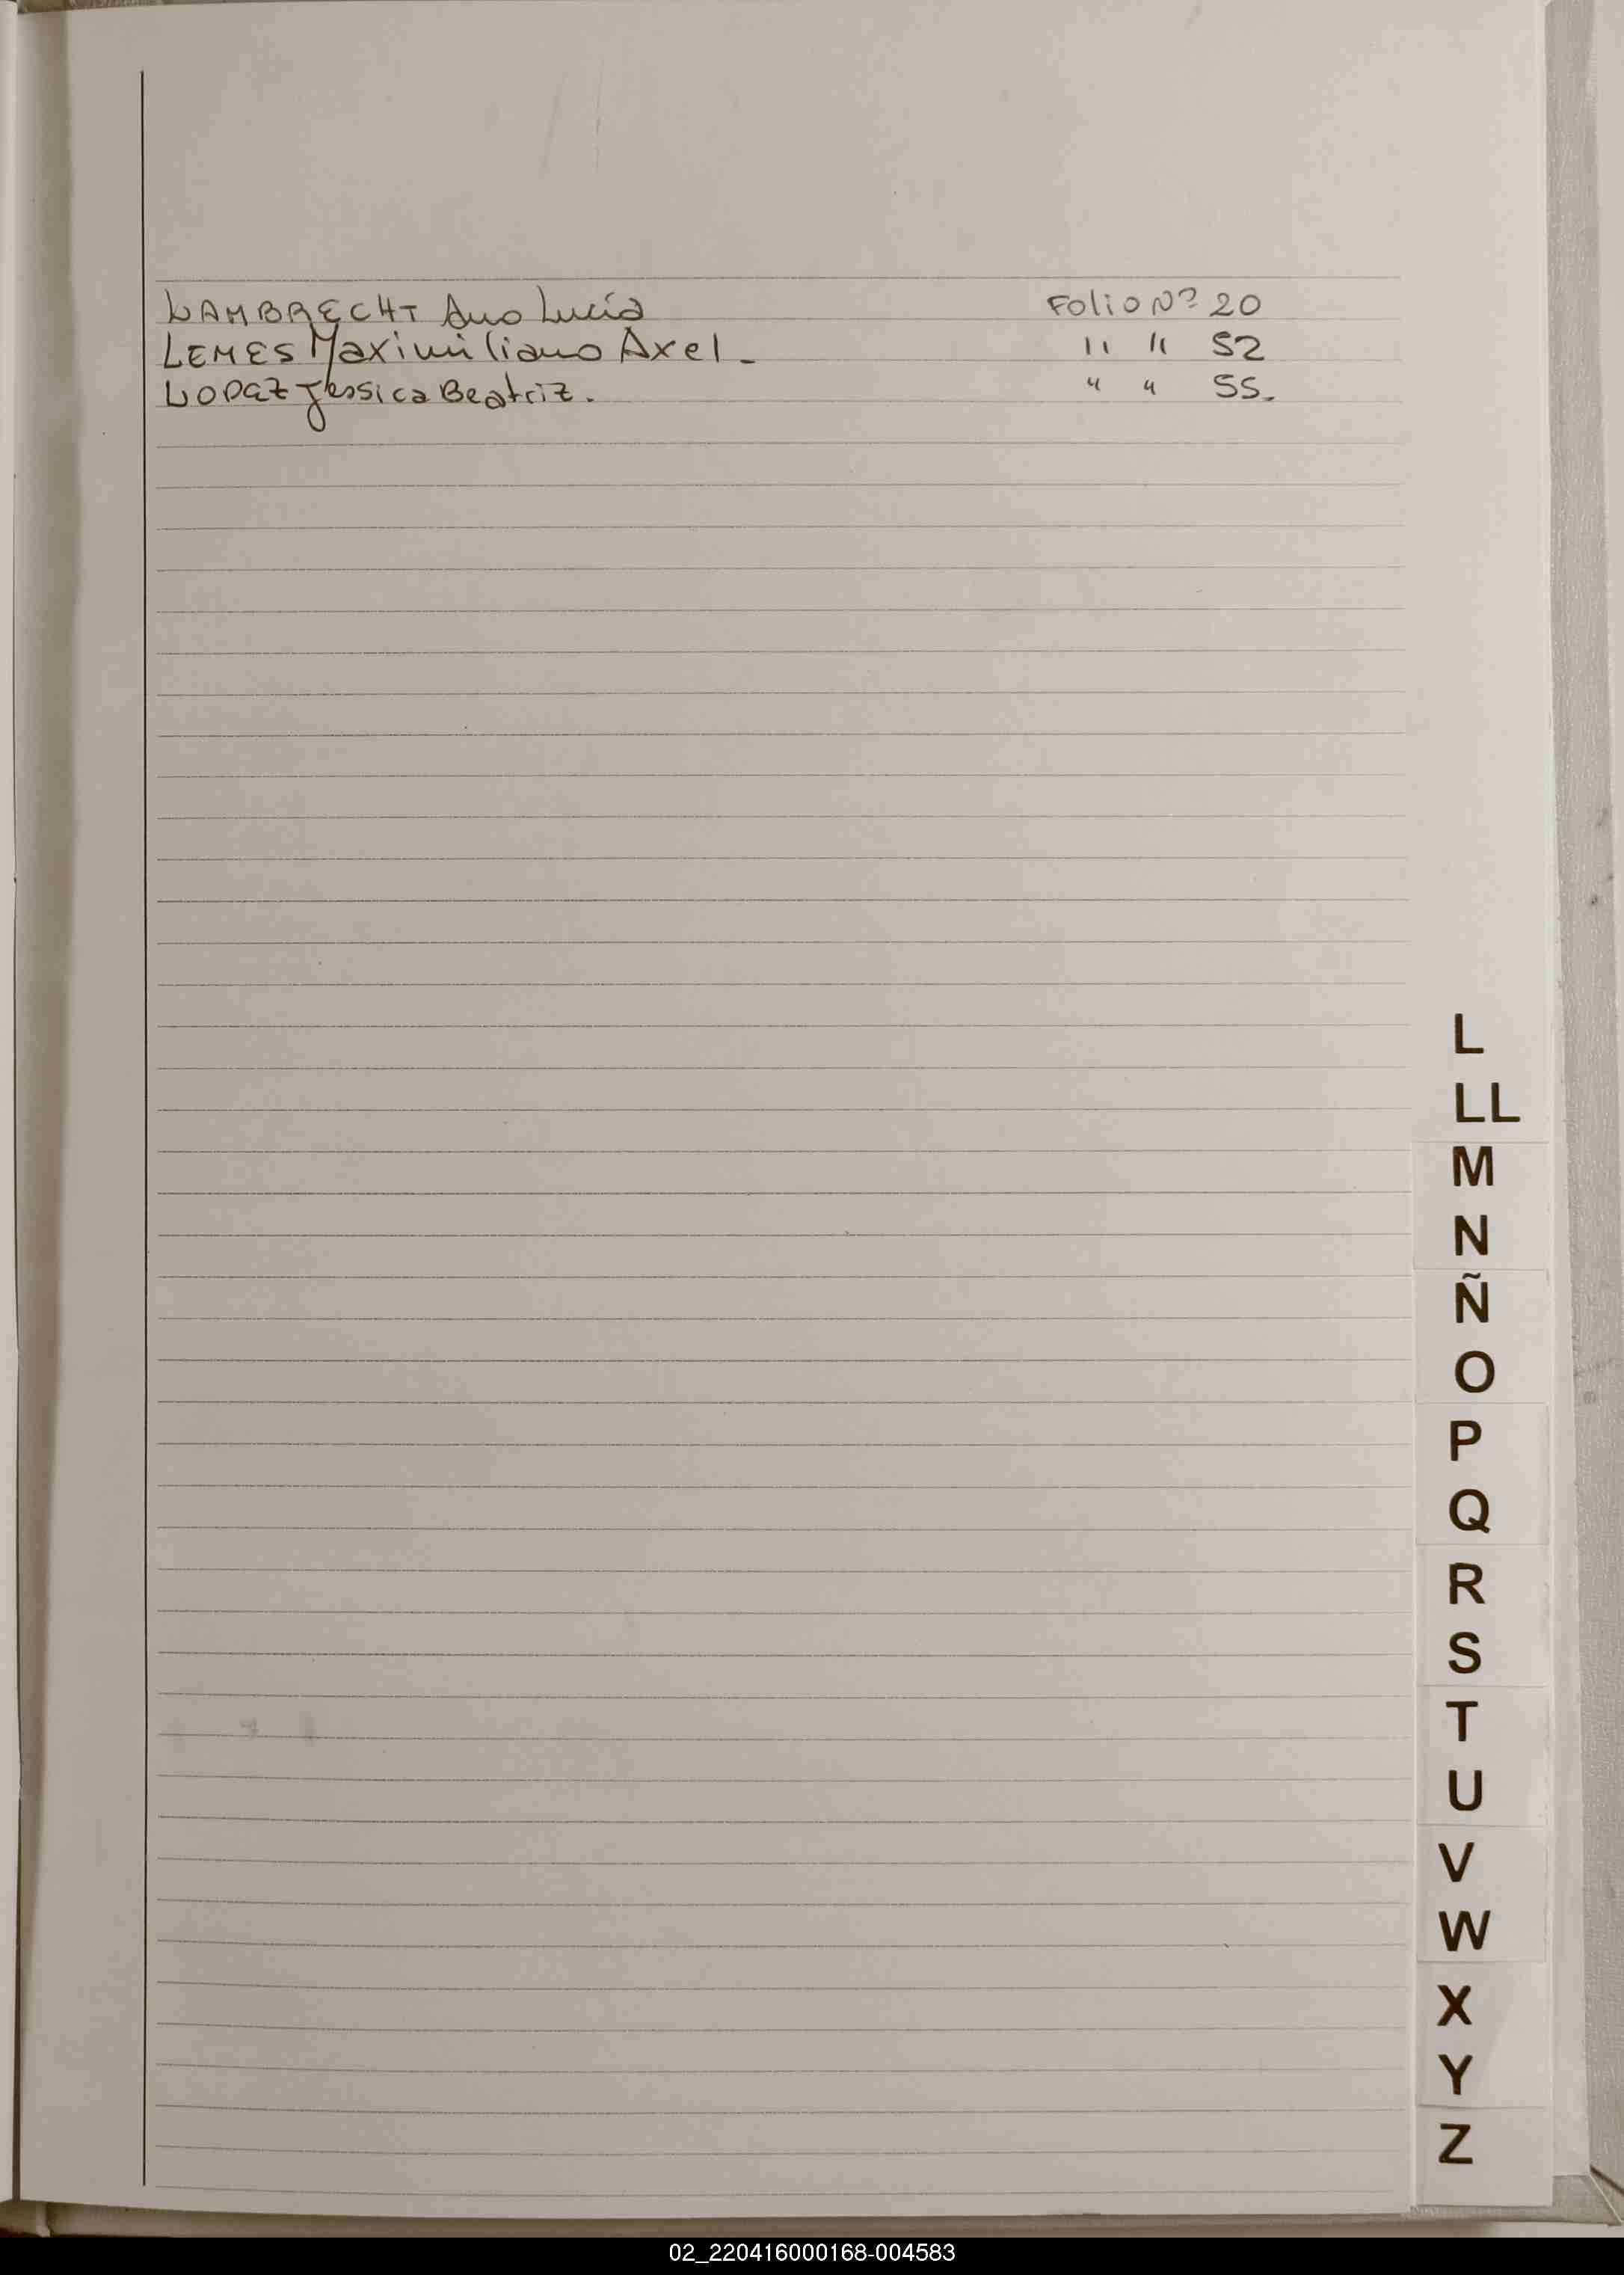 LAMBRECHT Ana Lucía Folio Nº 20
LEMES Maximiliano Axel - " " 52
LOPEZ Jessica Beatriz. " " 55-
L
LL
M
N
Ñ
O
P
Q
R
S
T
U
V
W
X
Y
Z
02_220416000168-004583